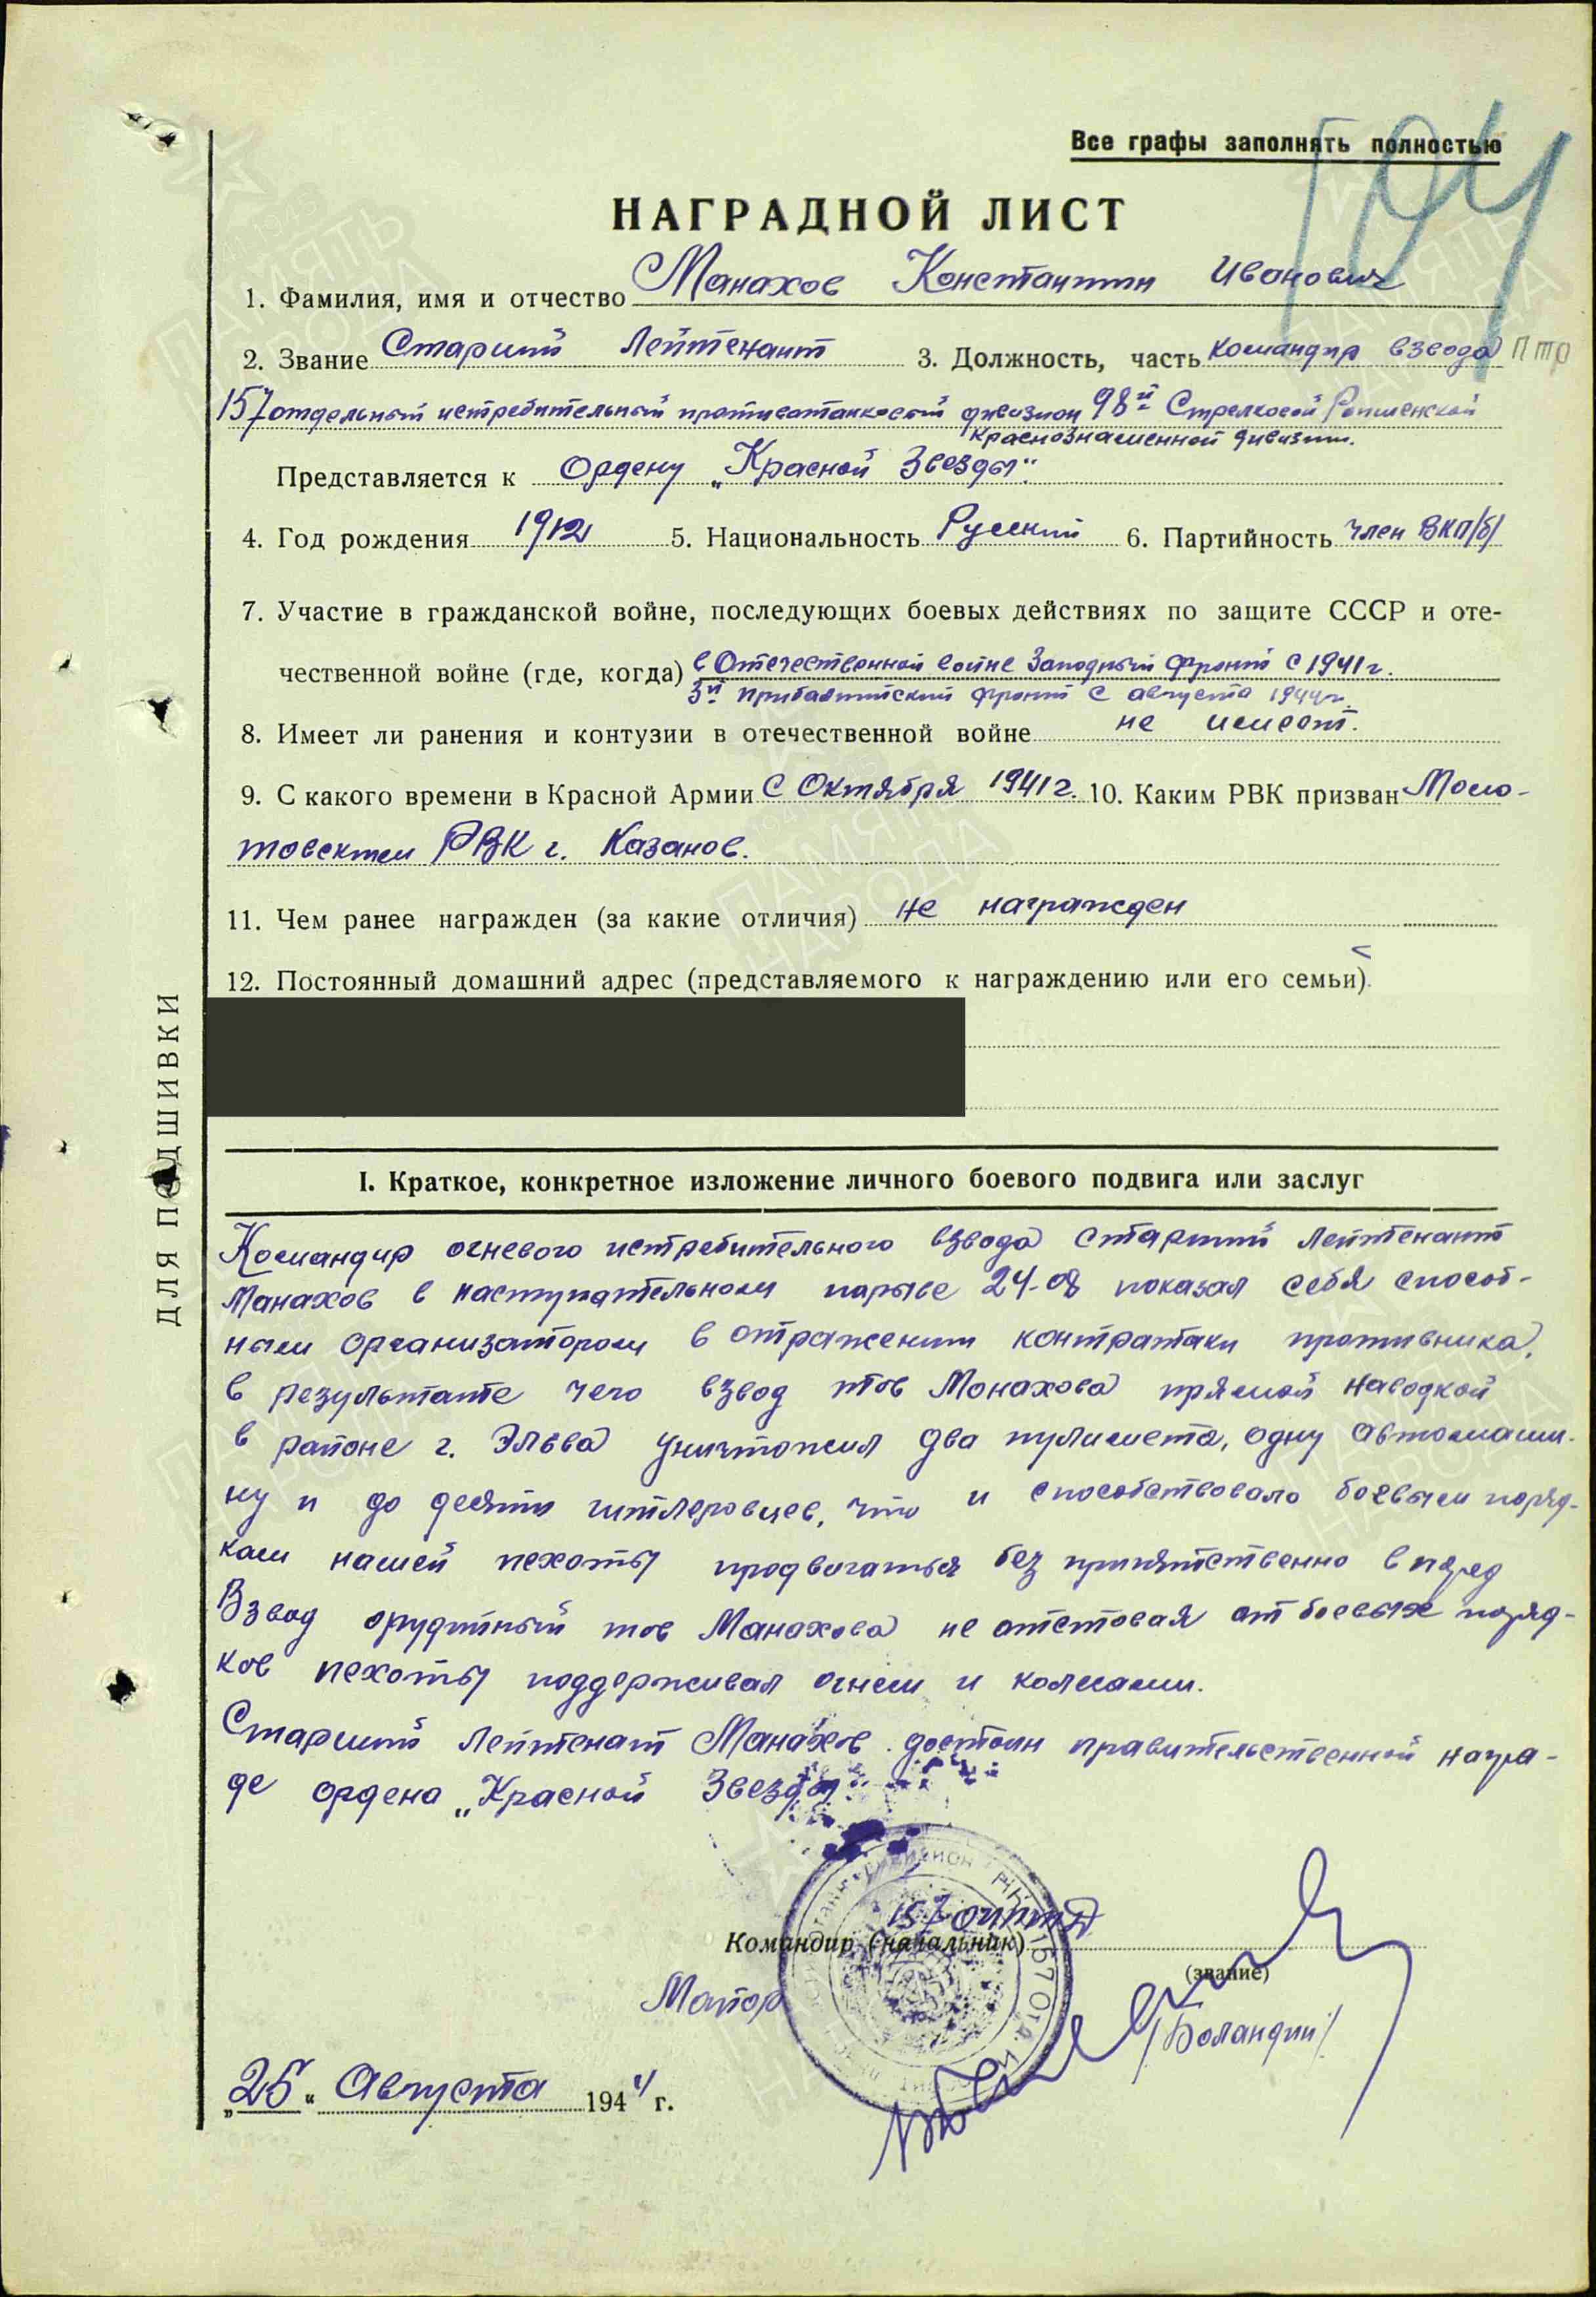 Все графы заполнять полностью
НАГРАДНОЙ ЛИСТ
1. Фамилия, имя и отчество Манахов Константин Иванович
2. Звание Старший Лейтенант 3. Должность, часть командир взвода ПТО
157 отдельный истребительный противотанковый дивизион 98й Стрелковой Ропшенской
Краснознаменной дивизии.
Представляется к Ордену „Красной Звезды".
4. Год рождения 1912 5. Национальность Русский 6. Партийность член ВКП/б/
7. Участие в гражданской войне, последующих боевых действиях по защите СССР и оте-
чественной войне (где, когда) в Отечественной войне Западный фронт с 1941 г.
3й прибалтийский фронт с августа 1944г.
8. Имеет ли ранения и контузии в отечественной войне не имеет.
9. С какого времени в Красной Армии С Октября 1941 г. 10. Каким РВК призван Моло-
товским РВК г. Казанов.
11. Чем ранее награжден (за какие отличия) не награжден
12. Постоянный домашний адрес (представляемого к награждению или его семьи)
ДЛЯ ПОДШИВКИ
I. Краткое, конкретное изложение личного боевого подвига или заслуг
Командир огневого истребительного взвода Старший Лейтенант
Манахов в наступательном порыве 24-08 показал себя способ-
ным организатором в отражении контратаки противника,
в результате чего взвод тов Монахова прямой наводкой
в районе г. Эльва уничтожил два пулимета, одну автомаши-
ну и до десяти гитлеровцев, что и способствовало боевым поряд-
кам нашей пехоты продвигаться без припятственно в перед
Взвод орудийный тов Манахова не отстовая от боевых поряд-
ков пехоты поддерживал огнем и колесами.
Старший Лейтенант Манахов достоин правительственной награ-
де ордена „Красной Звезды"
157 ОИПТД
Командир (начальник)
(звание)
Маиор
/Боландин/
„25" Августа 1944 г.